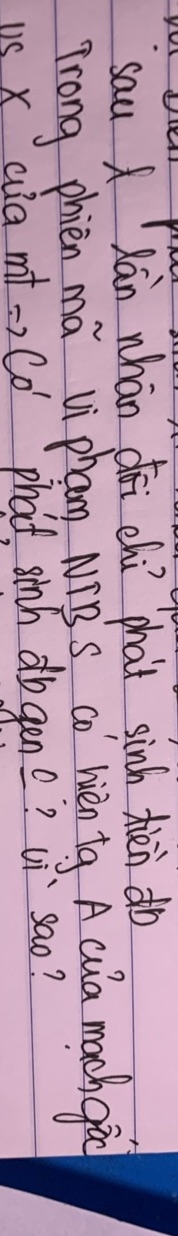 sau 1 lần nhân đôi chỉ phát sinh tiền đb
Trong phiên mã vi phạm NTBS có hiện tg A của mạch gốc
vs X của mt → Có phát sinh đb gen 0? vì sao?